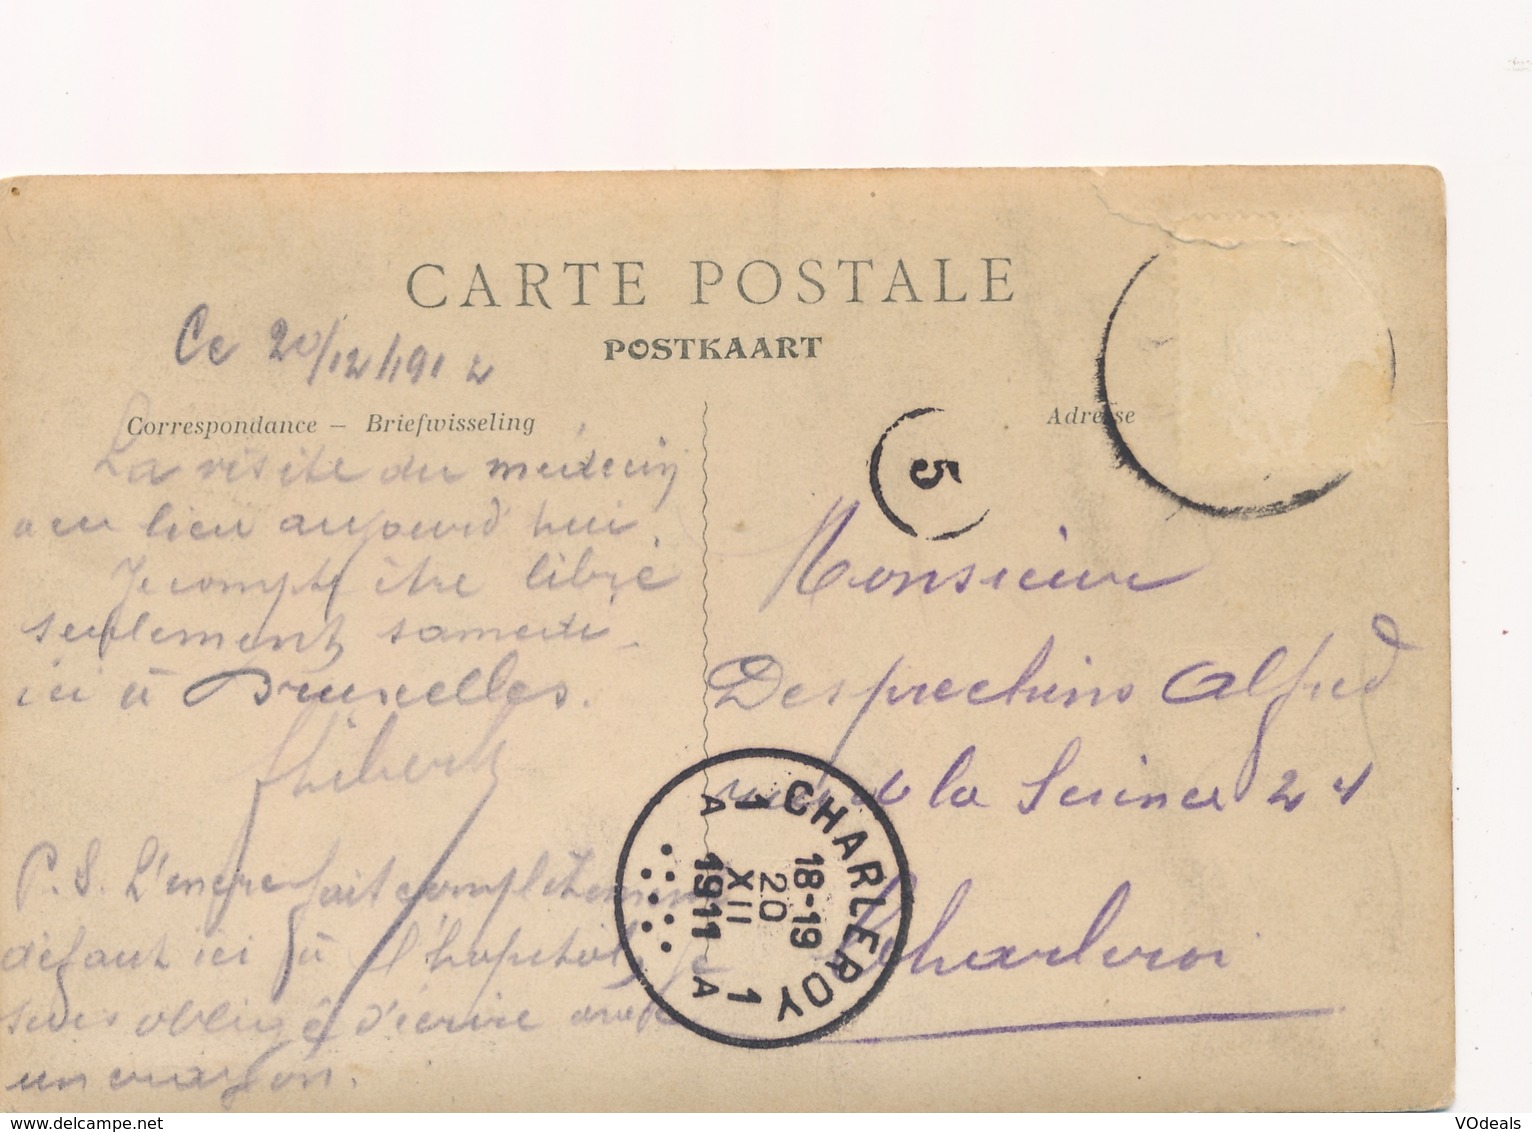 CARTE POSTALE
POSTKAART
Ce 20/12/191
Correspondance – Briefwisseling
Adresse
5
La visite du médecin
a eu lieu aujourd'hui.
Je compte être libre
seulement samedi
ici à Bruxelles.
P.S. L'encre fait complètement
défaut ici à l'hopital, je
suis obligé d'écrire avec
un crayon.
Monsieur
Desprechins Alfred
rue de la
Charleroi
CHARLEROY
1 A
18-19
20
XII
1911
1 A
VOdeals